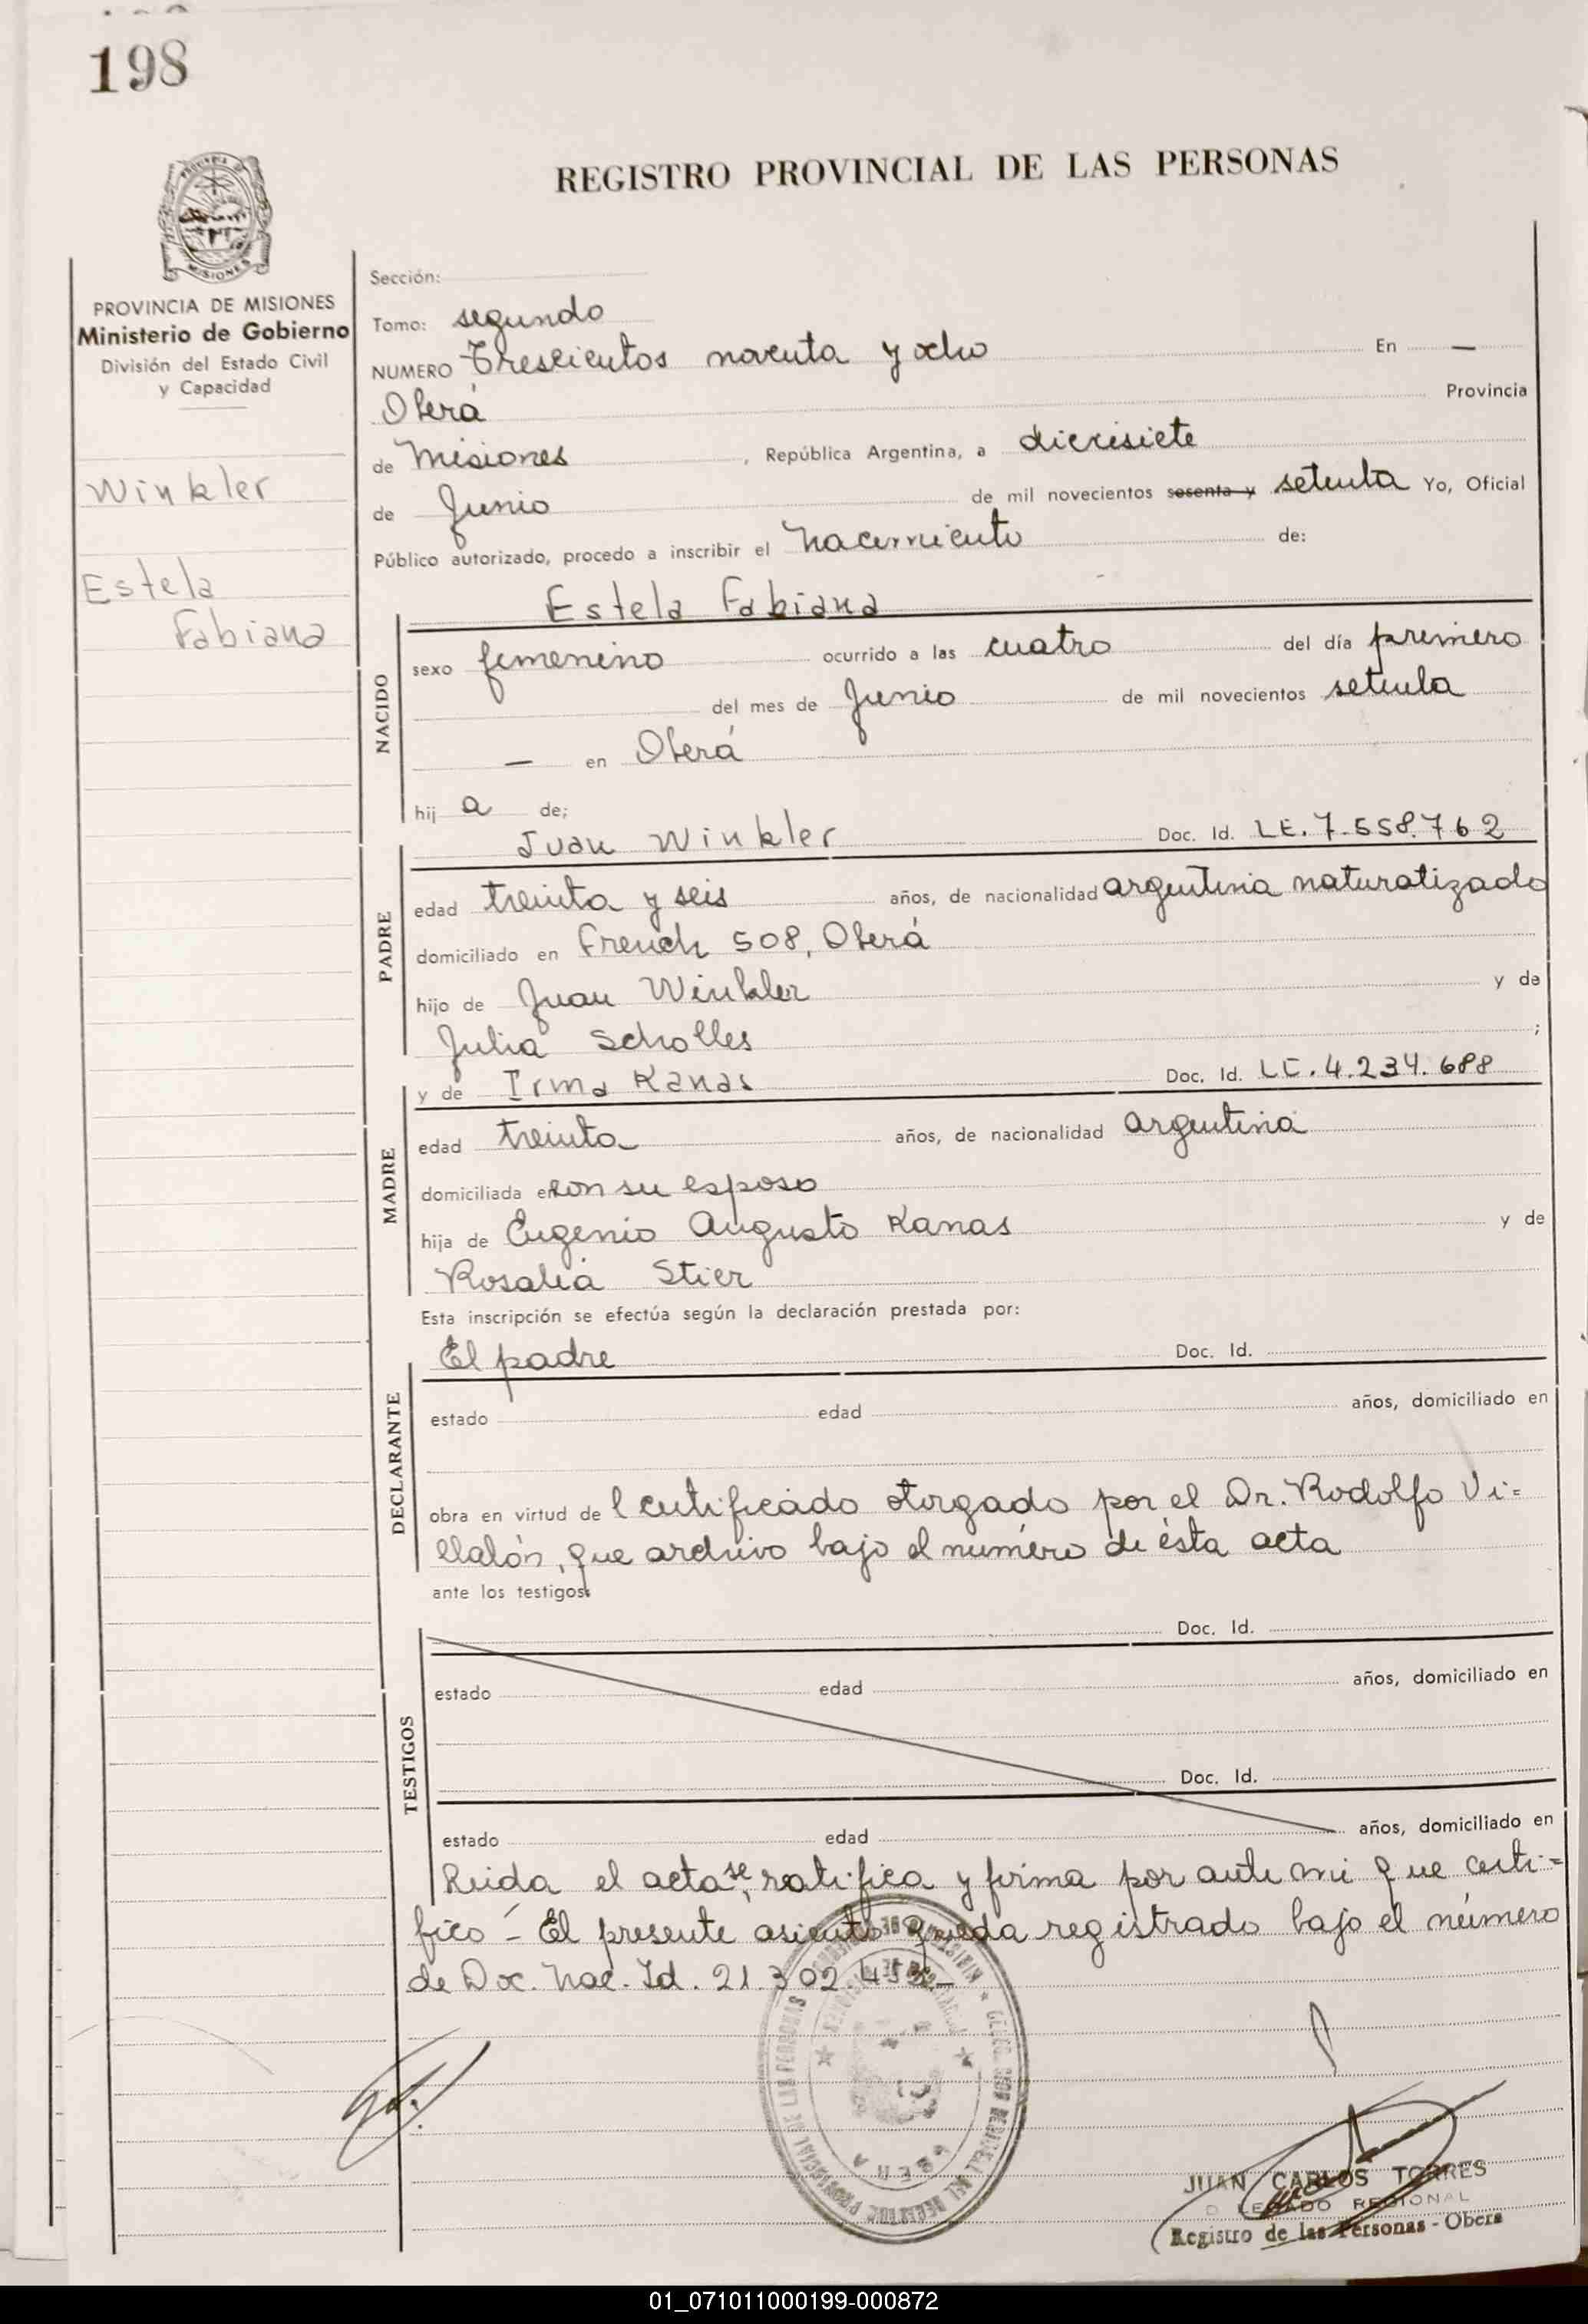 198
REGISTRO PROVINCIAL DE LAS PERSONAS
PROVINCIA DE MISIONES
Ministerio de Gobierno
División del Estado Civil
y Capacidad
Winkler
Estela
Fabiana
Sección:
Tomo: segundo
NUMERO Trescientos noventa y ocho En —
Oberá Provincia
de Misiones, República Argentina, a diecisiete
de Junio de mil novecientos sesenta y setenta Yo, Oficial
Público autorizado, procedo a inscribir el nacimiento de:
Estela Fabiana
NACIDO
sexo femenino ocurrido a las cuatro del día primero
del mes de Junio de mil novecientos setenta
— en Oberá
hij a de;
Juan Winkler Doc. Id. LE. 7.558.762
PADRE
edad treinta y seis años, de nacionalidad argentina naturalizado
domiciliado en French 508, Oberá
hijo de Juan Winkler y de
Julia Scholles ;
y de Irma Kanas Doc. Id. LC. 4.234.688
MADRE
edad treinta años, de nacionalidad argentina
domiciliada en con su esposo
hija de Eugenio Augusto Kanas y de
Rosalia Stier
Esta inscripción se efectúa según la declaración prestada por:
El padre Doc. Id.
DECLARANTE
estado edad años, domiciliado en
obra en virtud de l certificado otorgado por el Dr. Rodolfo Vi=
llalón, que archivo bajo el número de ésta acta
ante los testigos:
Doc. Id.
TESTIGOS
estado edad años, domiciliado en
Doc. Id.
estado edad años, domiciliado en
Leida el acta, se ratifica y firma por ante mi que certi=
fico - El presente asiento queda registrado bajo el número
de Doc. Nac. Id. 21.302.
OBERA
JUAN CARLOS TORRES
DELEGADO REGIONAL
Registro de las Personas - Obera
01_071011000199-000872